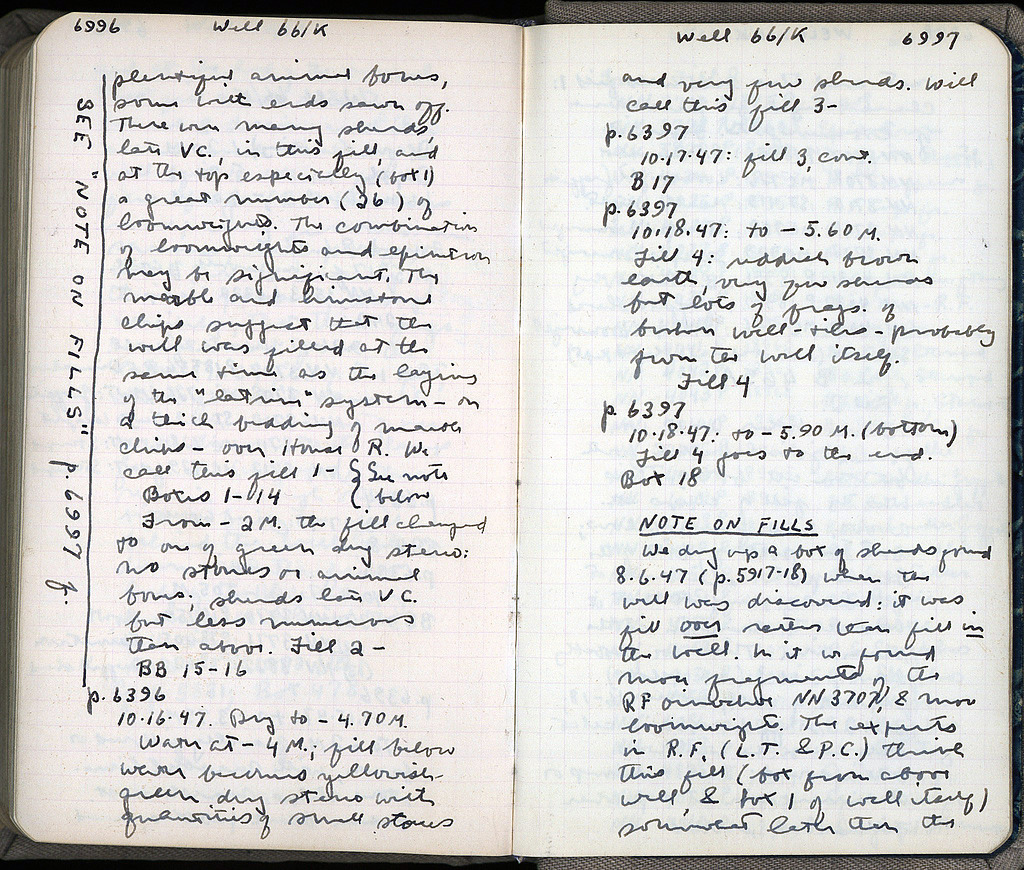 6996 Well 66/K
SEE "NOTE ON FILLS" p. 6997 f.
plentiful animal bones,
some with ends sawn off.
There were many sherds
late VC., in this fill, and
at the top especially (box 1)
a great number (36) of
loomweights. The combination
of loomweights and epinetron
may be significant. The
marble and limestone
chips suggest that the
well was filled at the
same time as the laying
of the "latrine" system - on
a thick bedding of marble
chips - over House R. We
call this fill 1 - { See note
Boxes 1-14 { below
From - 2 M. the fill changed
to one of green dry stereo:
no stones or animal
bones. sherds late VC.
but less numerous
than above. Fill 2 -
BB 15-16
p. 6396
10.16.47. Dug to - 4.70 M.
Water at - 4 M.; fill below
water becomes yellowish-
green dug stereo with
quantities of small stones
Well 66/K 6997
and very few sherds. Will
call this fill 3 -
p. 6397
10.17.47: fill 3, cont.
B 17
p. 6397
10.18.47: to - 5.60 M.
Fill 4: reddish brown
earth, very few sherds
but lots of frags. of
broken well-tiles - probably
from the well itself.
Fill 4
p. 6397
10.18.47. to - 5.90 M. (bottom)
Fill 4 goes to the end.
Box 18
NOTE ON FILLS
We dug up a box of sherds found
8.6.47 (p. 5917-18) when the
well was discovered: it was
fill over rather than fill in
the well. In it we found
more fragments of the
RF oinochoe NN 3707, & more
loomweights. The experts
in R.F. (L.T. & P.C.) think
this fill (box from above
well, & box 1 of well itself)
somewhat later than the